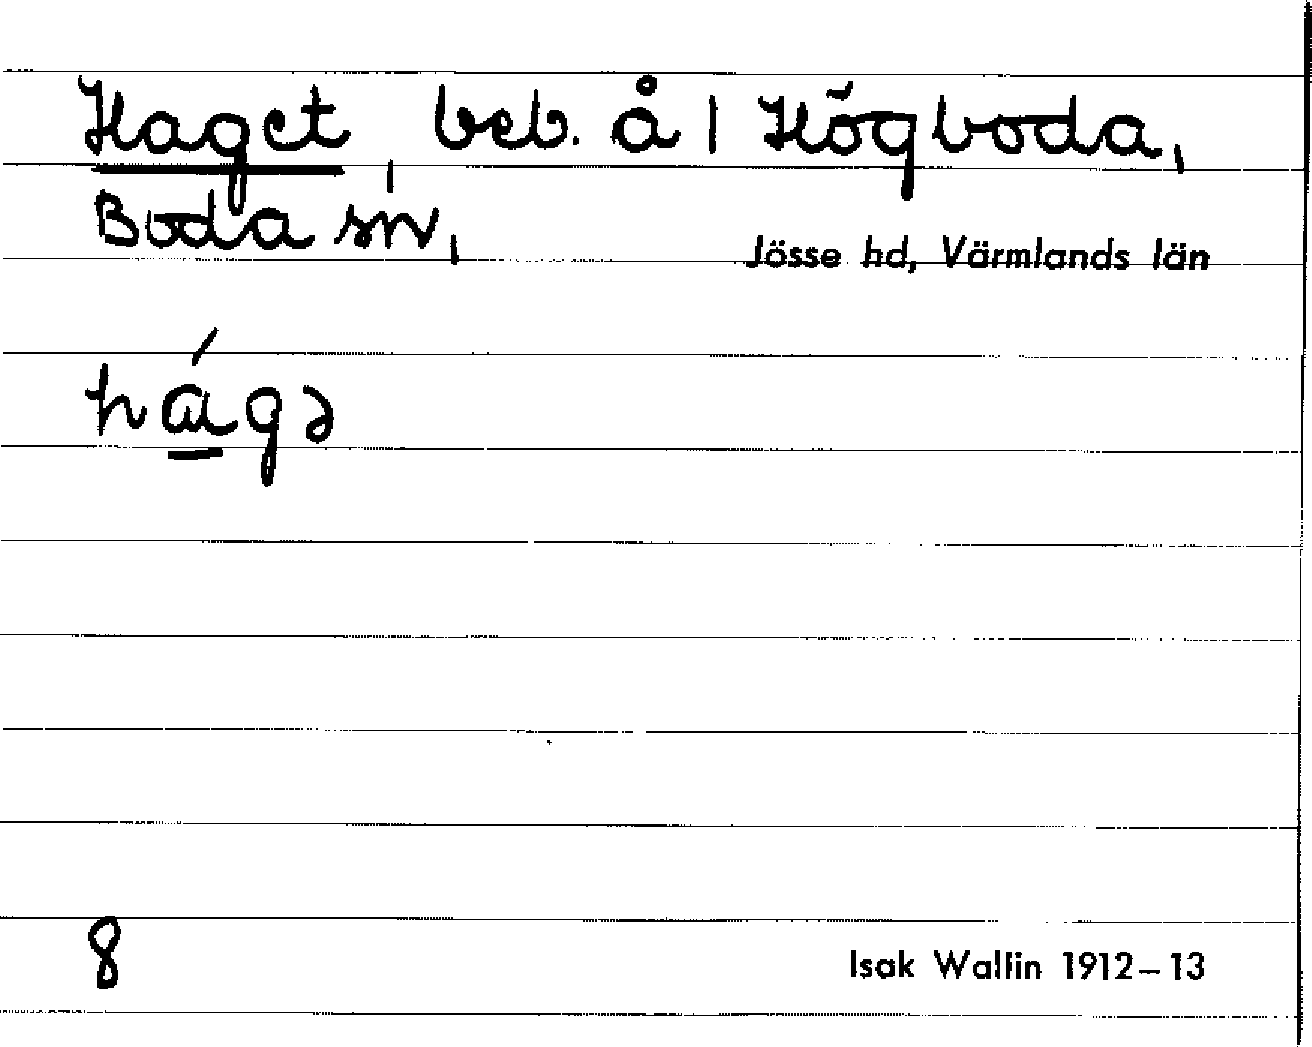 Haget, beb. å 1 Högboda,
Boda sn,
Jösse hd, Värmlands län
há̱gə
8
Isak Wallin 1912–13